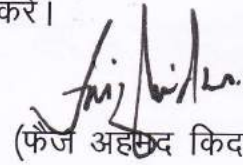 करें।
(फैज अहमद किद